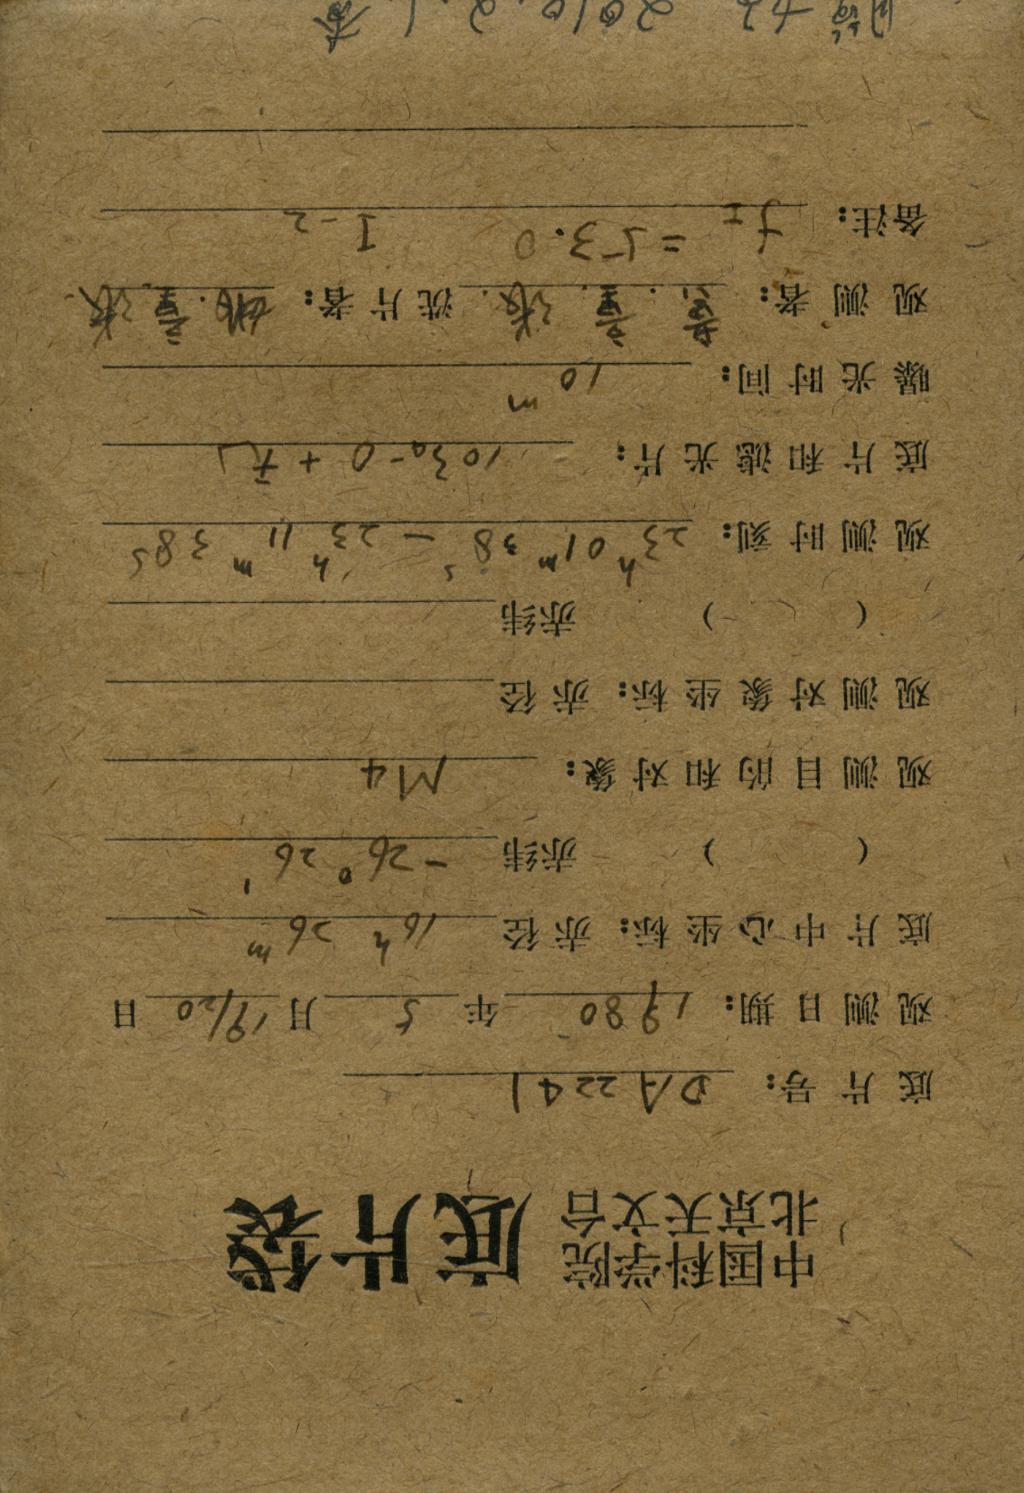 中国科学院
北京天文台 底片袋
底片号: DA2241
观测日期: 1980年5月19/20日
底片中心坐标: 赤径 16h 26m
( ) 赤纬 -26° 26'
观测目的和对象: M4
观测对象坐标: 赤径
( ) 赤纬
观测时刻: 23h 01m 38s - 23h 11m 38s
底片和滤光片: 103a-O + 无
曝光时间: 10m
观测者: 童. 张. 洗片者: 童. 张
备注: fI = 53.0 I-2
2010.2.1